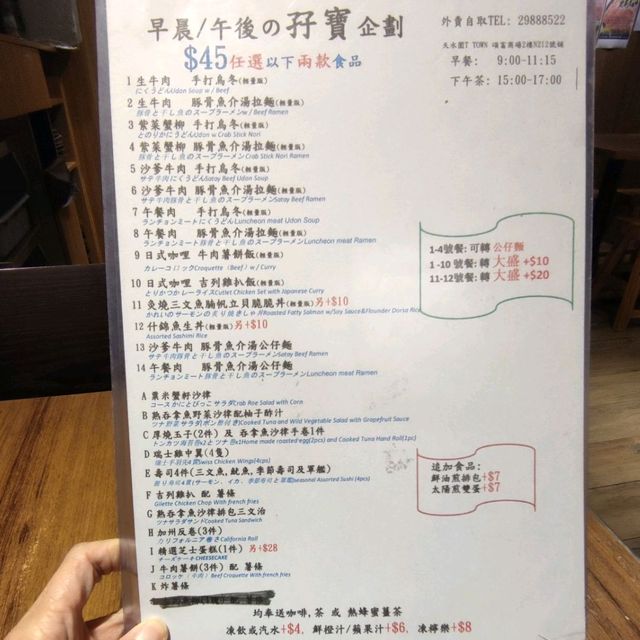 早晨/午後の孖寶企劃
$45任選以下兩款食品
外賣自取TEL: 29888522
天水圍T TOWN 頌富商場2樓N212號舖
早餐: 9:00-11:15
下午茶: 15:00-17:00
1 生牛肉 手打烏冬(輕量版)
にくうどんUdon Soup w / Beef
2 生牛肉 豚骨魚介湯拉麵(輕量版)
豚骨と干し魚のスープラーメンw / Beef Ramen
3 紫菜蟹柳 手打烏冬(輕量版)
とのりかにうどんUdon w Crab Stick Nori
4 紫菜蟹柳 豚骨魚介湯拉麵(輕量版)
豚骨と干し魚のスープラーメンCrab Stick Nori Ramen
5 沙爹牛肉 手打烏冬(輕量版)
サテ牛肉にくうどんSatay Beef Udon Soup
6 沙爹牛肉 豚骨魚介湯拉麵(輕量版)
サテ牛肉豚骨と干し魚のスープラーメンSatay Beef Ramen
7 午餐肉 手打烏冬(輕量版)
ランチョンミートにくうどんLuncheon meat Udon Soup
8 午餐肉 豚骨魚介湯拉麵(輕量版)
ランチョンミート豚骨と干し魚のスープラーメンLuncheon meat Ramen
9 日式咖喱 牛肉薯餅飯(輕量版)
カレーコロックCroquette（Beef）w / Curry
10 日式咖喱 吉列雞扒飯(輕量版)
とりかつカレーライスCutlet Chicken Set with Japanese Curry
11 炙燒三文魚腩帆立貝脆脆丼(輕量版)另+$10
Roasted Fatty Salmon w/Soy Sauce&Flounder Dorsa Rice
12 什錦魚生丼 另+$10
Assorted Sashimi Rice
13 沙爹牛肉 豚骨魚介湯公仔麵
サテ牛肉豚骨と干し魚のスープラーメンSatay Beef Ramen
14 午餐肉 豚骨魚介湯公仔麵
ランチョンミート豚骨と干し魚のスープラーメンLuncheon meat Ramen
1-4號餐: 可轉 公仔麵
1 -10 號餐: 轉 大盛 +$10
11-12號餐: 轉 大盛 +$20
A 粟米蟹軒沙律
コースかにとびっこサラダCrab Roe Salad with Corn
B 熟吞拿魚野菜沙律配柚子酢汁
Cooked Tuna and Wild Vegetable Salad with Grapefruit Sauce
C 厚燒玉子(2件) 及 吞拿魚沙律手卷1件
home made roasted egg(2pcs) and Cooked Tuna Hand Roll(1pc)
D 瑞士雞中翼(4隻)
Swiss Chicken Wing(4pcs)
E 壽司4件(三文魚,魷魚,季節壽司及軍艦)
Seasonal Assorted Sushi (4pcs)
F 吉列雞扒 配 薯條
Gilette Chicken Chop With french fries
G 熟吞拿魚沙律排包三文治
ツナサラダサンドCooked Tuna Sandwich
H 加州反卷(3件)
カリフォルニア巻きCalifornia Roll
I 精選芝士蛋糕(1件) 另+$28
チーズケーキCHEESECAKE
J 牛肉薯餅(3件) 配 薯條
コロッケ（牛肉）Beef Croquette With french fries
K 炸薯條
追加食品:
鮮油煎排包+$7
太陽煎雙蛋+$7
均奉送咖啡,茶 或 熱蜂蜜薑茶
凍飲或汽水+$4, 鮮橙汁/蘋果汁+$6, 凍檸樂+$8